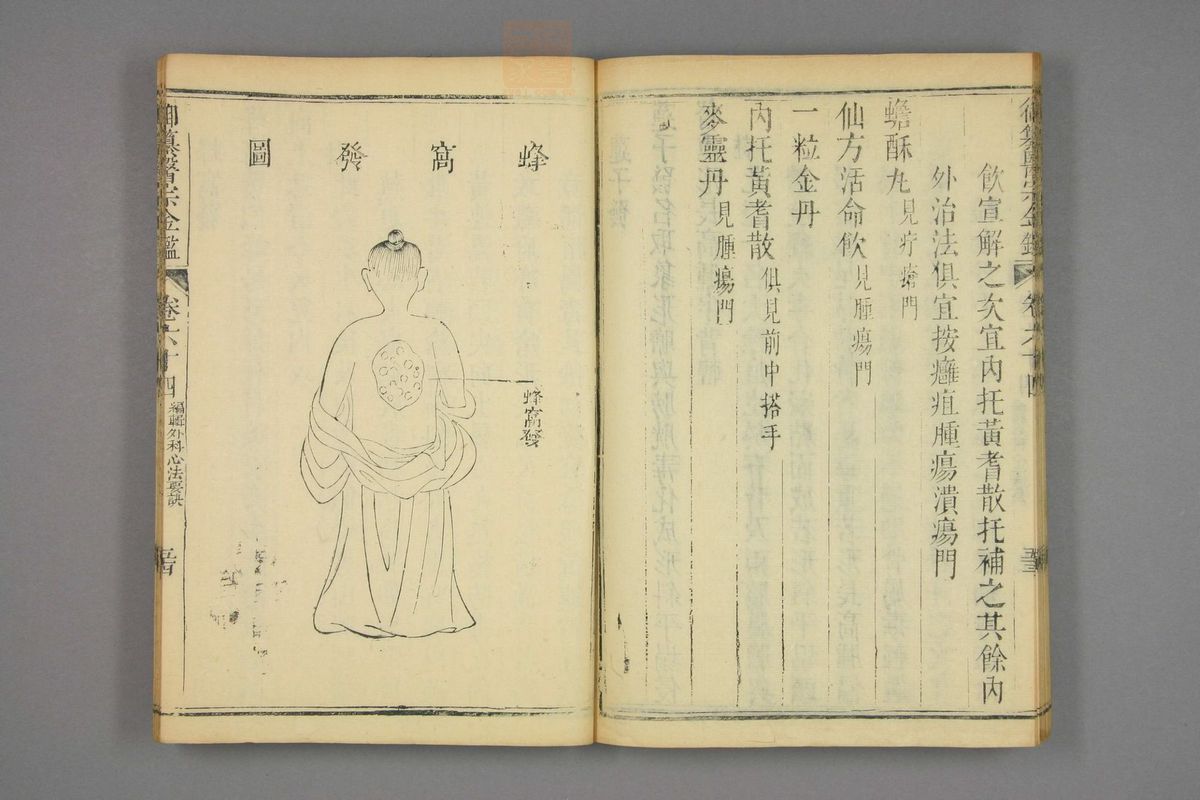 飲宣解之次宜內托黃耆散托補之其餘內
外治法俱宜按癰疽腫瘍潰瘍門
蟾酥丸見疔瘡門
仙方活命飲見腫瘍門
一粒金丹
內托黃耆散俱見前中搭手
麥靈丹見腫瘍門
蜂窩發圖
蜂窩發
御纂醫宗金鑑 卷六十四 編輯外科心法要訣